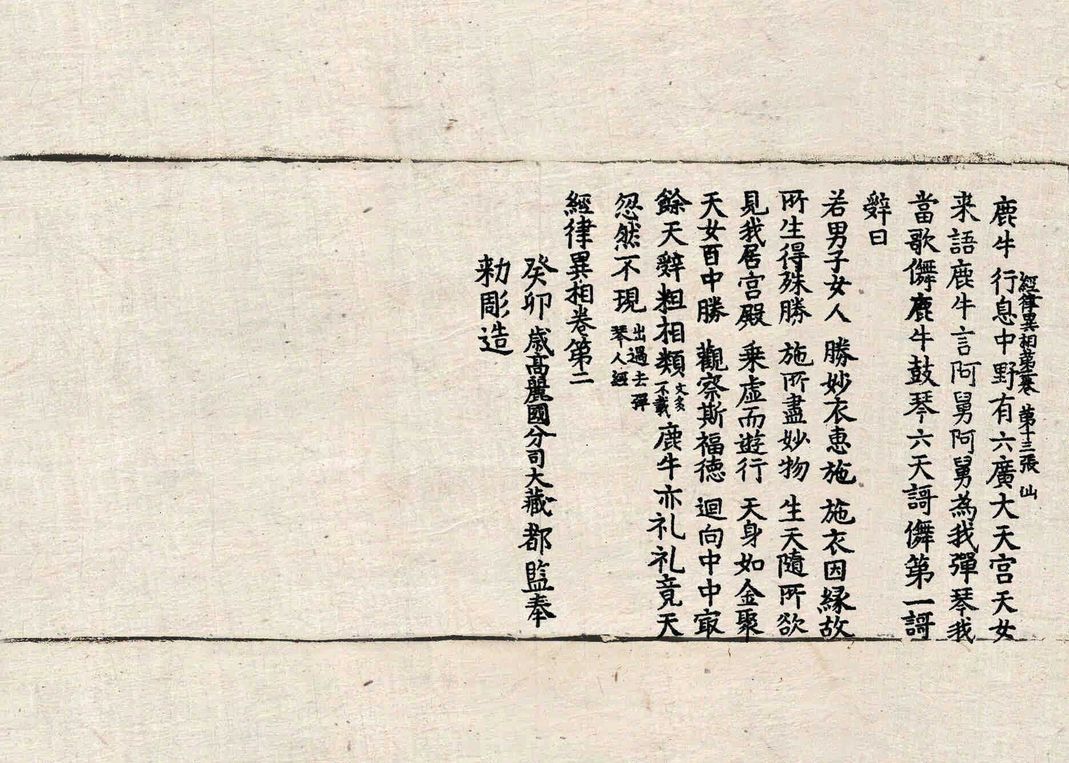 鹿牛行息中野有六廣大天宮天女
經律異相第二卷 第十三張 仙
来語鹿牛言阿舅阿舅為我彈琴我
當歌儛鹿牛鼓琴六天謌儛第一謌
辝曰
若男子女人 勝妙衣惠施 施衣因縁故
所生得殊勝 施所盡妙物 生天隨所欲
見我居宮殿 乗虚而遊行 天身如金聚
天女百中勝 觀察斯福德 迴向中中㝡
餘天辝粗相類文多不載鹿牛亦礼礼竟天
忽然不現出過去彈琴人經
經律異相卷第二
癸卯歳高麗國分司大藏都監奉
勑彫造